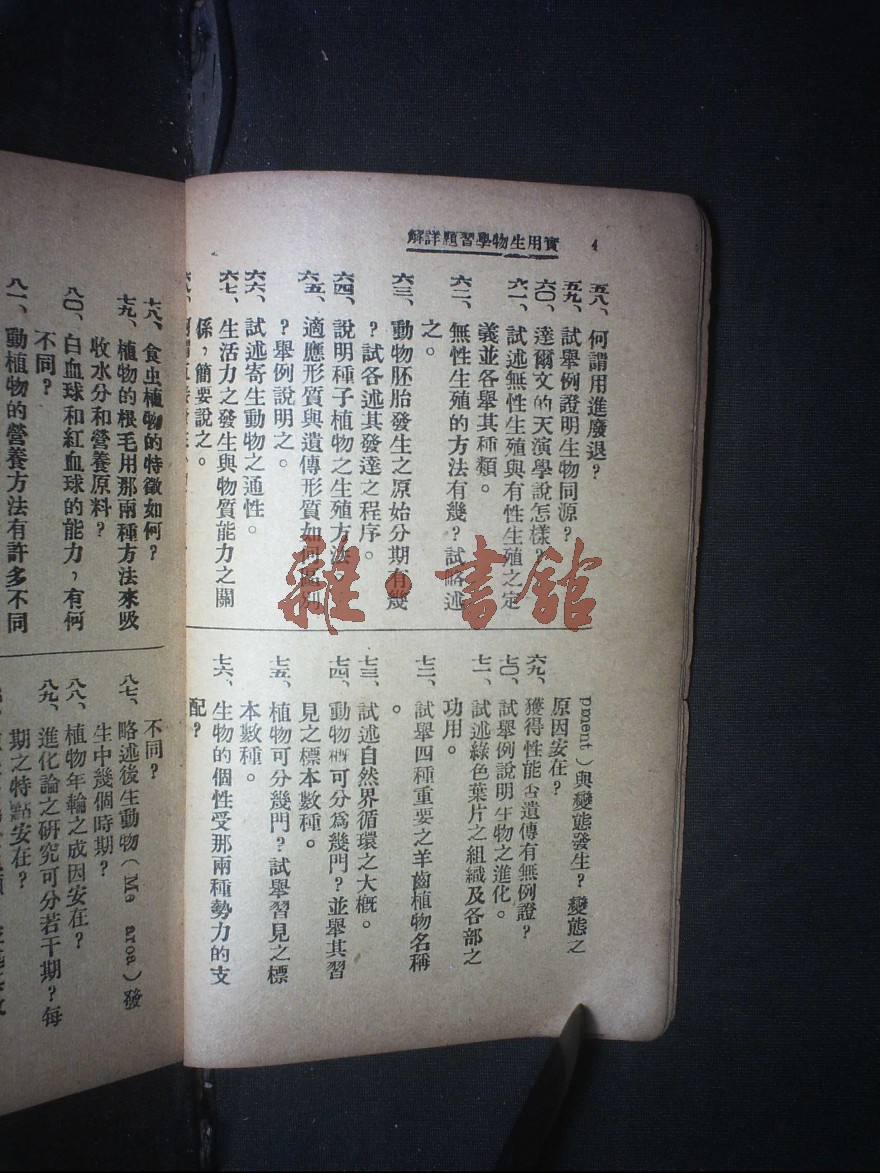 實用生物學習題詳解
4
五八、何謂用進廢退？
五九、試舉例證明生物同源？
六〇、達爾文的天演學說怎樣？
六一、試述無性生殖與有性生殖之定
義並各舉其種類。
六二、無性生殖的方法有幾？試略述
之。
六三、動物胚胎發生之原始分期有幾
？試各述其發達之程序。
六四、說明種子植物之生殖方法。
六五、適應形質與遺傳形質如何區別
？舉例說明之。
六六、試述寄生動物之通性。
六七、生活力之發生與物質能力之關
係，簡要說之。
pment）與變態發生？變態之
原因安在？
六九、獲得性能否遺傳有無例證？
七〇、試舉例說明生物之進化。
七一、試述綠色葉片之組織及各部之
功用。
七二、試舉四種重要之羊齒植物名稱
。
七三、試述自然界循環之大概。
七四、動物概可分為幾門？並舉其習
見之標本數種。
七五、植物可分幾門？試舉習見之標
本數種。
七六、生物的個性受那兩種勢力的支
配？
七八、食虫植物的特徵如何？
七九、植物的根毛用那兩種方法來吸
收水分和營養原料？
八〇、白血球和紅血球的能力，有何
不同？
八一、動植物的營養方法有許多不同
不同？
八七、略述後生動物（Me aroa）發
生中幾個時期？
八八、植物年輪之成因安在？
八九、進化論之研究可分若干期？每
期之特點安在？
雜·書館